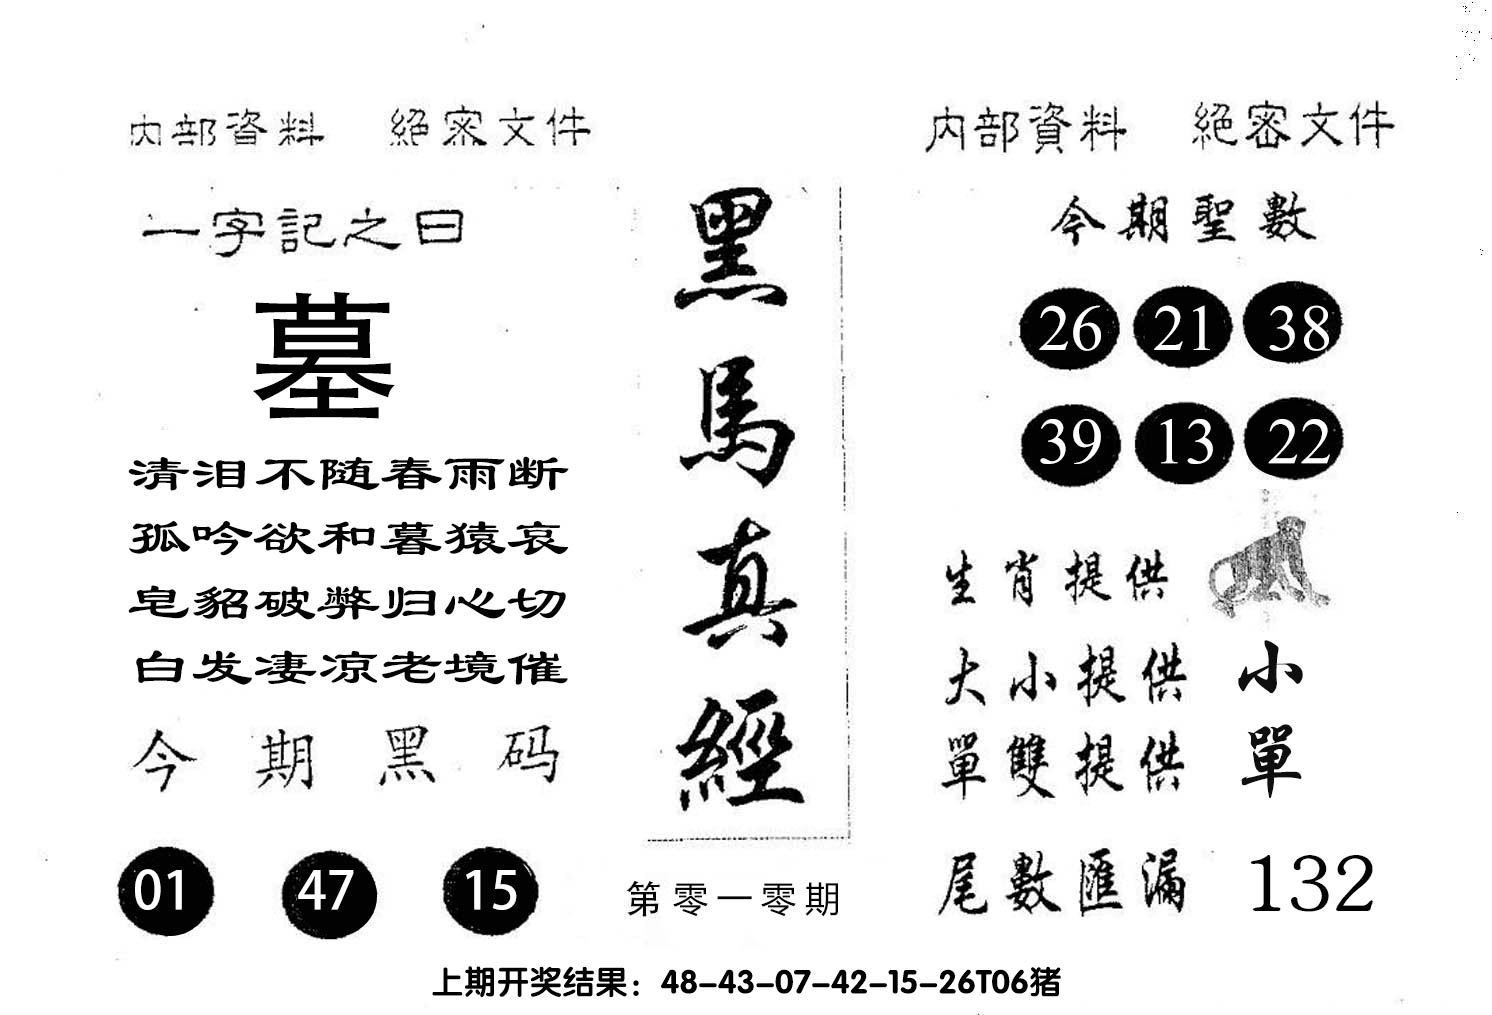 内部資料 絕密文件
一字記之曰
墓
清泪不随春雨断
孤吟欲和暮猿哀
皂貂破弊归心切
白发凄凉老境催
今期黑码
01 47 15
黑馬真經
第零一零期
内部資料 絕密文件
今期聖數
26 21 38
39 13 22
生肖提供
大小提供 小
單雙提供 單
尾數匯漏 132
上期开奖结果：48-43-07-42-15-26T06猪